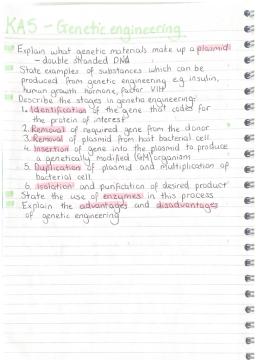 KA5 - Genetic engineering
Explain what genetic materials make up a plasmid
- double stranded DNA
State examples of substances which can be
produced from genetic engineering e.g insulin,
human growth hormone, factor VIII
Describe the stages in genetic engineering:
1. Identification of the gene that codes for
the protein of interest
2. Removal of required gene from the donor
3. Removal of plasmid from host bacterial cell
4. Insertion of gene into the plasmid to produce
a genetically modified (GM) organism
5. Duplication of plasmid and multiplication of
bacterial cell
6. Isolation and purification of desired product
State the use of enzymes in this process
Explain the advantages and disadvantages
of genetic engineering